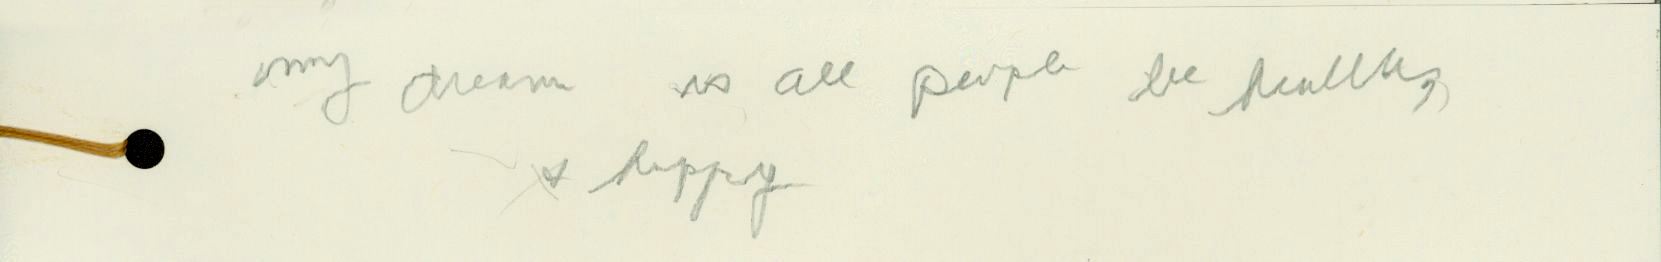 my dream is all people be healthy
& happy